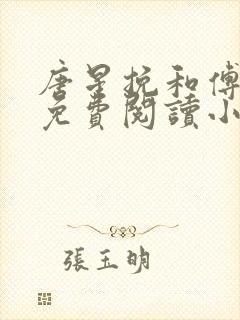 唐星挽和傅
免費閱讀小
張玉明